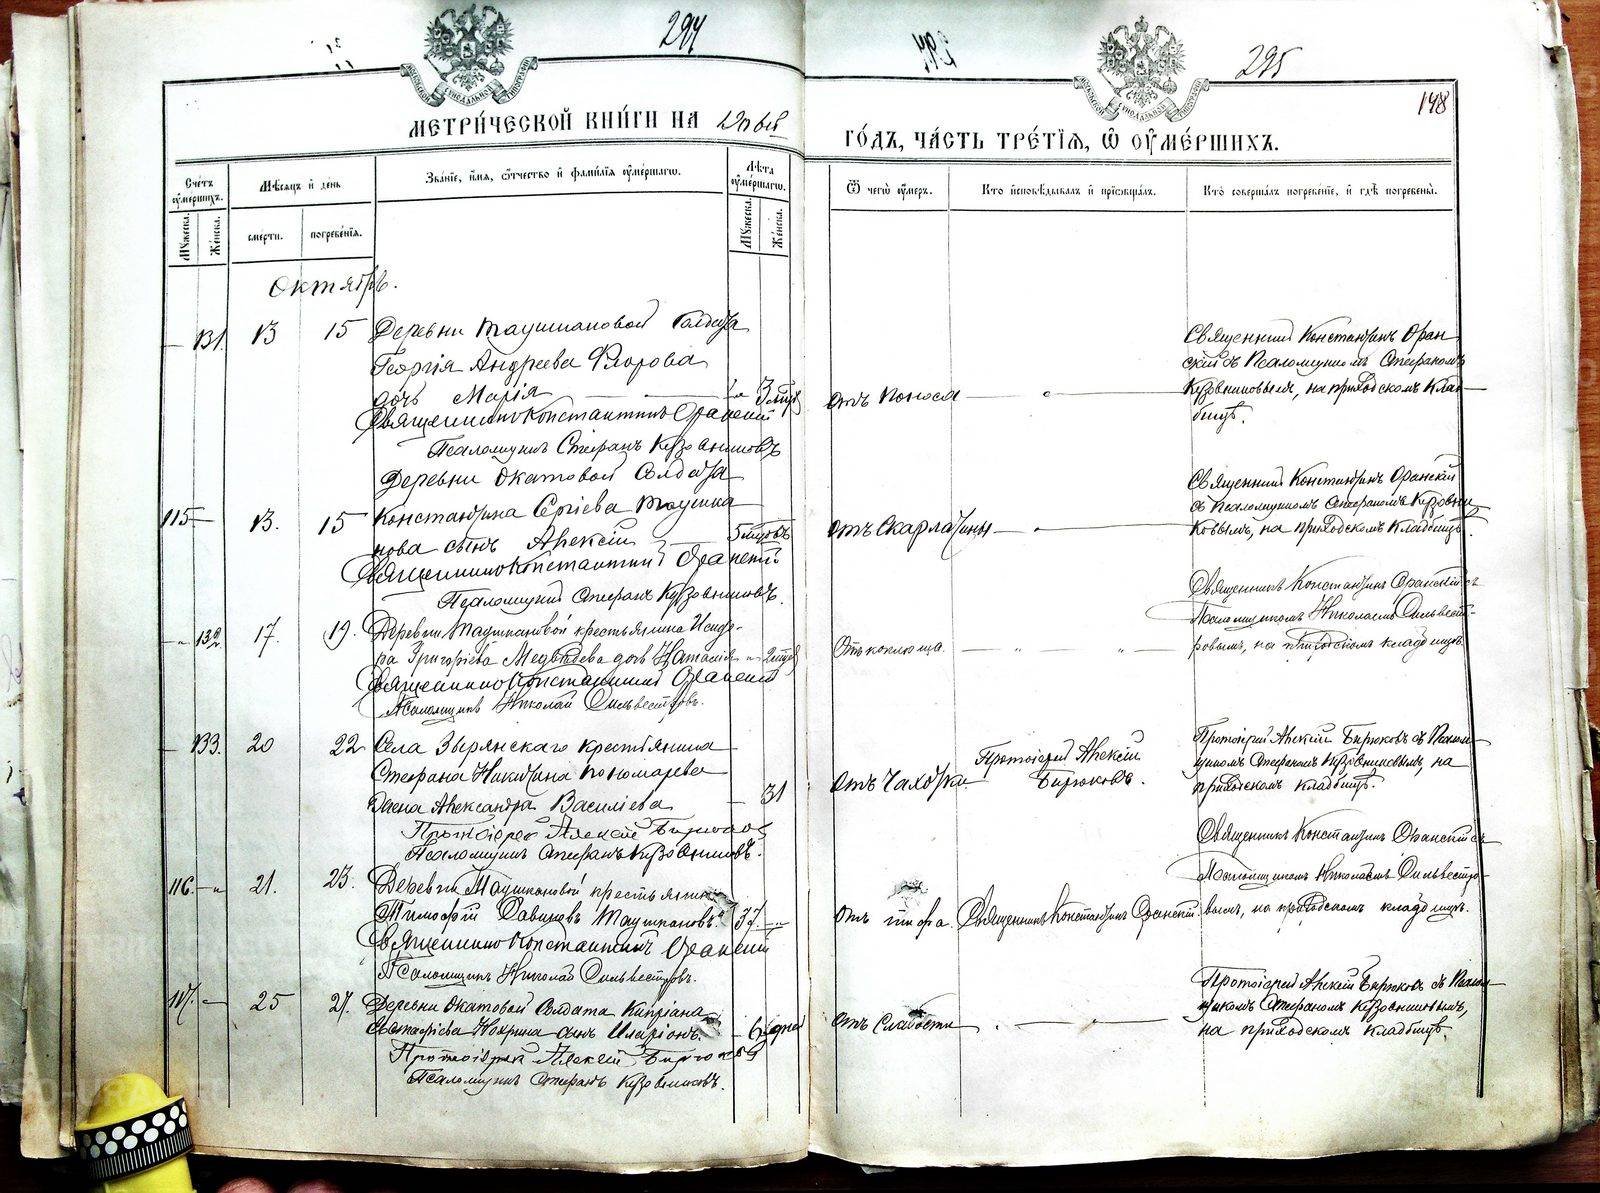 294
295
148
МЕТРИЧЕСКОЙ КНИГИ НА
ГОДЪ, ЧАСТЬ ТРЕТІЯ, Ѿ ОУМЕРШИХЪ.
Счетъ оумершихъ.
Мужеска.
Женска.
Мѣсяцъ и день
смерти.
погребенія.
Званіе, имя, отчество и фамилія оумершагѡ.
Лѣта оумершагѡ.
Мужеска.
Женска.
Ѿ чегѡ оумеръ.
Кто исповѣдывалъ и пріобщалъ.
Кто совершалъ погребеніе, и гдѣ погребены.
Октябрь.
131 13 15 Деревни Таушкановой Солдата
Георгія Андреева Флорова
дочь Марія
Священникъ Константинъ Оранскій
Псаломщикъ Стефанъ Кузовниковъ
Отъ поноса
Священник Константинъ Оран
скій съ Псаломщикомъ Стефаномъ
Кузовниковымъ, на приходскомъ Клад
бищѣ.
115 13. 15 Деревни Окатовой Солдата
Константина Сергіева Таушка
нова сынъ Алексій
Священникъ Константинъ Оранскій
Псаломщикъ Стефанъ Кузовниковъ.
отъ Скарлатины
Священник Константинъ Оранскій
съ Псаломщикомъ Стефаномъ Кузовни
ковымъ, на приходскомъ Кладбищѣ.
132 17. 19. Деревни Таушкановой крестьянина Исидо-
ра Григоріева Медвѣдева дочь Наталія
Священникъ Константинъ Оранскій
Псаломщикъ Николай Сильвестровъ.
Отъ коклюша.
Священникъ Константинъ Оранскій съ
Псаломщикомъ Николаемъ Сильвест-
ровымъ, на приходскомъ кладбищѣ.
133. 20 22 Села Зырянскаго крестьянина
Стефана Никитина Пономарева
жена Александра Василіева 31
Протоіерей Алексій Бирюковъ
Псаломщикъ Стефанъ Кузовниковъ.
отъ Чахотки
Протоіерей Алексій
Бирюковъ.
Протоіерей Алексій Бирюковъ съ Псалом
щикомъ Стефаномъ Кузовниковымъ, на
приходскомъ кладбищѣ.
116. 21. 23. Деревни Таушкановой крестьянинъ
Тимофей Давидовъ Таушкановъ. 37.
Священникъ Константинъ Оранскій
Псаломщикъ Николай Сильвестровъ.
Отъ тифа. Священникъ Константинъ Оранскій.
Священникъ Константинъ Оранскій съ
Псаломщикомъ Николаемъ Сильвестро-
вымъ, на приходскомъ кладбищѣ.
117. 25 27. Деревни Окатовой Солдата Кипріана
Евстафіева Нохрина сынъ Иларіонъ.
Протоіерей Алексій Бирюковъ
Псаломщикъ Стефанъ Кузовниковъ.
отъ Слабости
Протоіерей Алексій Бирюковъ съ Псалом
щикомъ Стефаномъ Кузовниковымъ,
на приходскомъ Кладбищѣ.